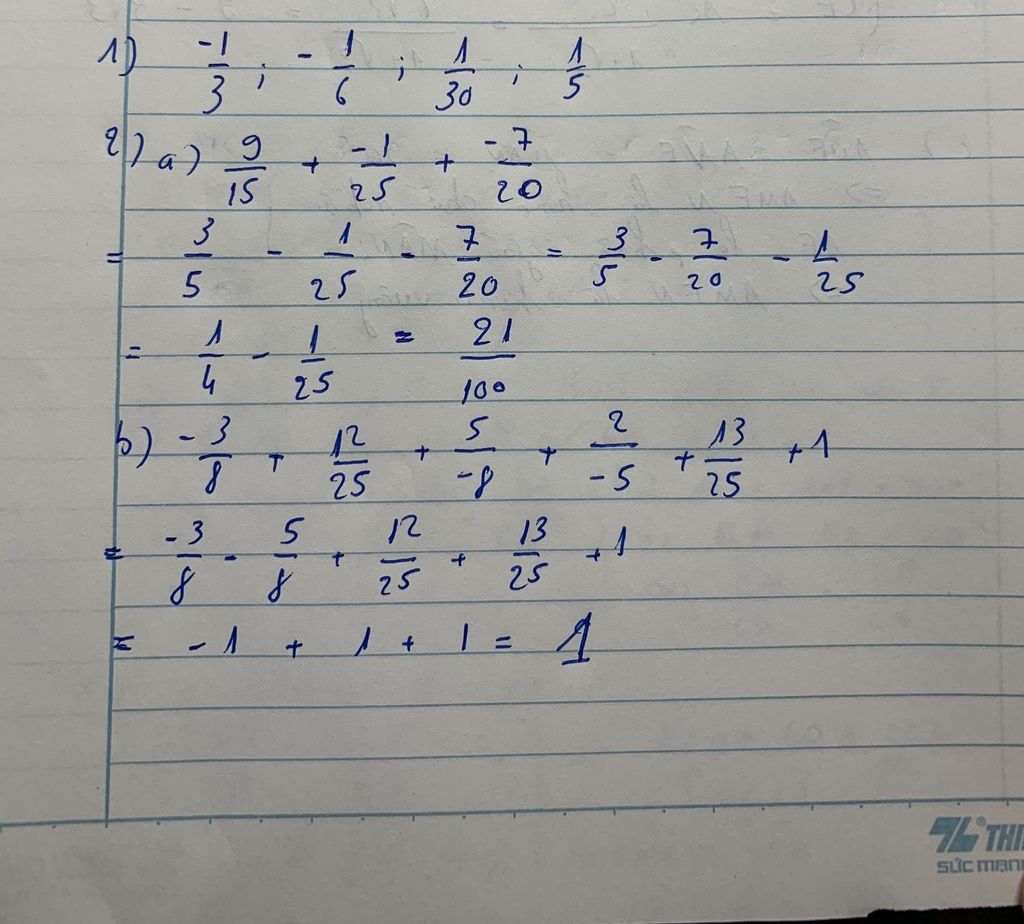 1) -1/3 ; - 1/6 ; 1/30 ; 1/5
2) a) 9/15 + -1/25 + -7/20
= 3/5 - 1/25 - 7/20 = 3/5 - 7/20 - 1/25
= 1/4 - 1/25 = 21/100
b) -3/8 + 12/25 + 5/-8 + 2/-5 + 13/25 + 1
= -3/8 - 5/8 + 12/25 + 13/25 + 1
= -1 + 1 + 1 = 1
SỨC MẠNH